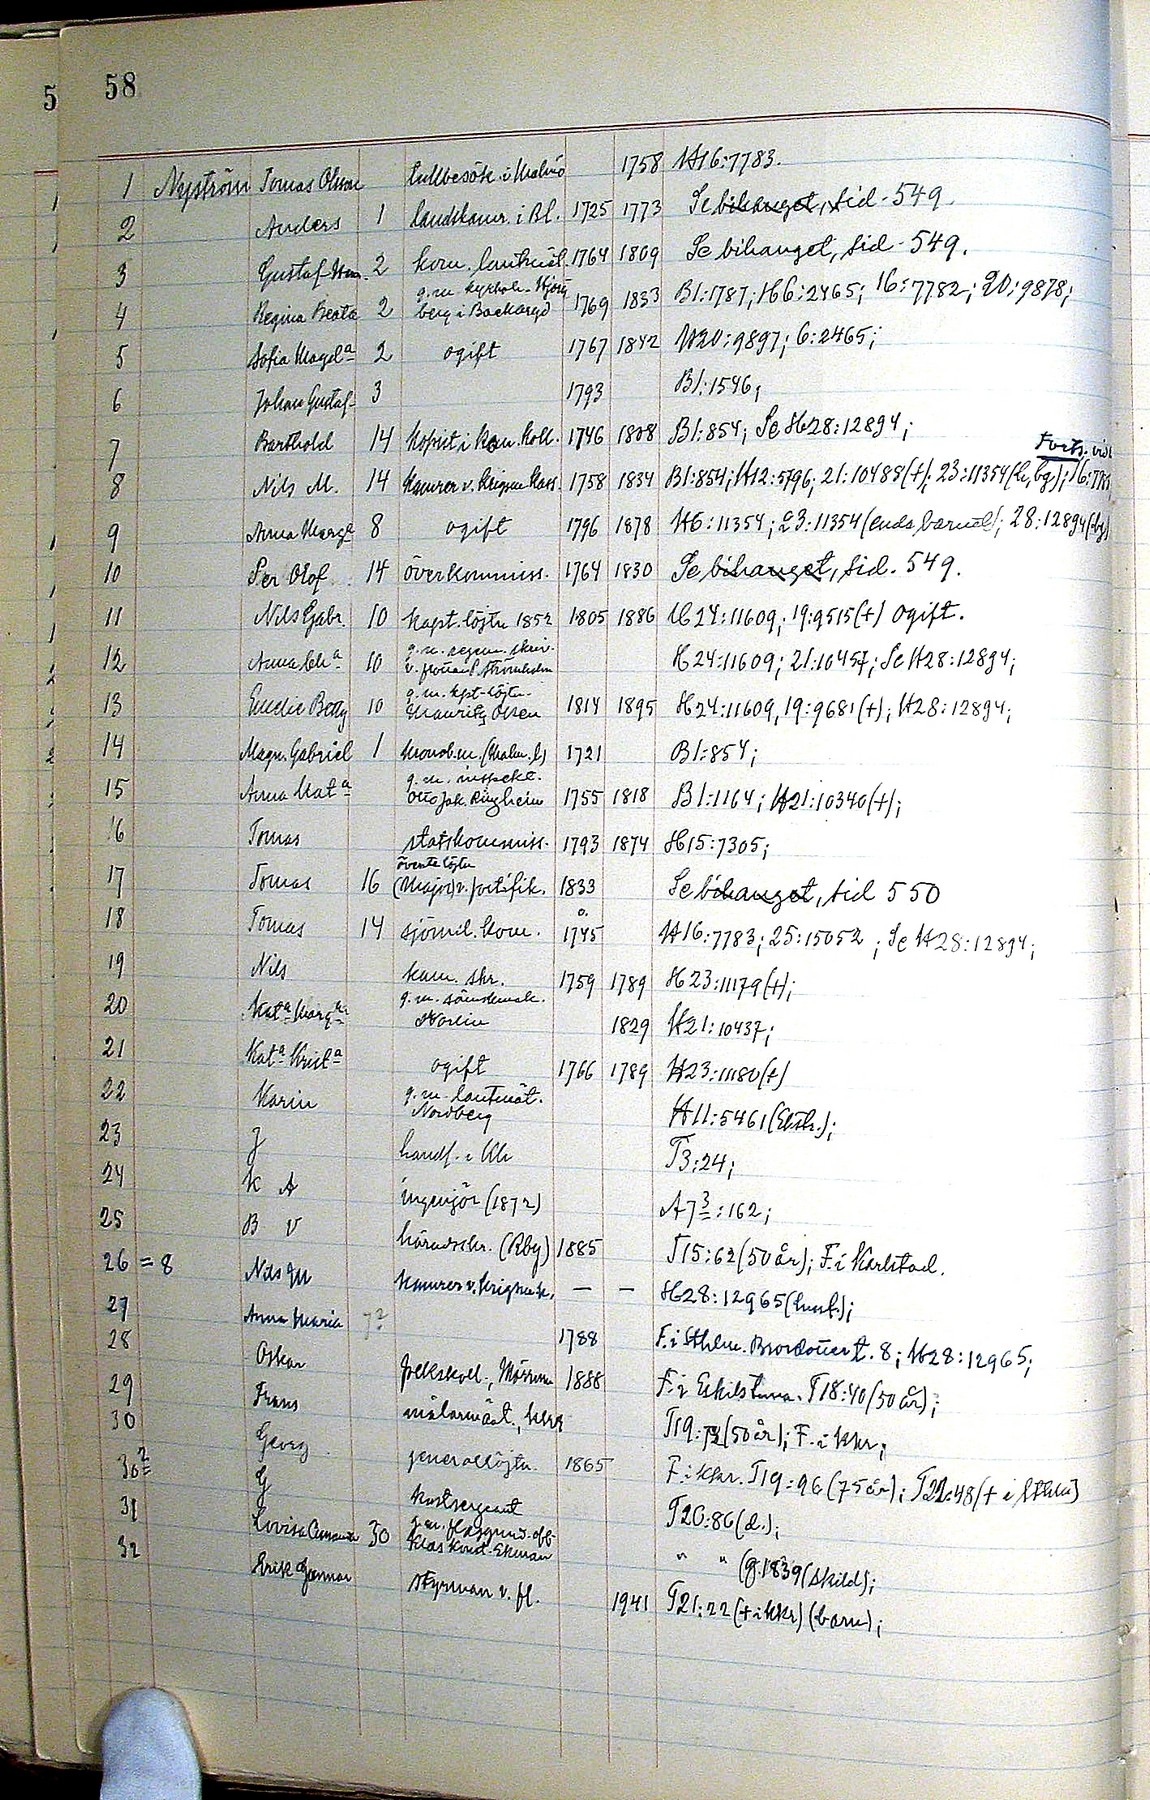 58
5
1 Nyström Tomas Olsson tullbesök. i Malmö 1758 H16:7783.
2 Anders 1 landskamr. i Bl. 1725 1773 Se bihanget, sid. 549.
3 Gustaf 2 kom. lantmät. 1764 1809 Se bihanget, sid. 549.
4 Regina Beata 2 g.m. kyrkoh. berg i Backaryd 1769 1833 B1:1787; H6:2465; 16:7782; 20:9878;
5 Sofia Magdᵃ 2 ogift 1767 1842 H20:9897; 6:2465;
6 Johan Gustaf 3 1793 B1:1546;
7 Barthold 14 kopist i kam. koll. 1746 1808 B1:854; Se H28:12894;
Forts. vid
8 Nils M. 14 kamrer v. krigsm. kass. 1758 1834 B1:854; H12:5796; 21:10488(+); 23:11354(h, bg); 16:778
9 Anna Margᵃ 8 ogift 1796 1878 H6:11354; 23:11354(enda barnet); 28:12894(bg)
10 Per Olof 14 överkommiss. 1764 1830 Se bihanget, sid. 549.
11 Nils Gabr. 10 kapt. löjtn 1852 1805 1886 H24:11609; 19:9515(+) ogift.
12 Anna Chᵃ 10 g.m. regem. skriv. v. flottan Strömholm H24:11609; 21:10457; Se H28:12894;
13 Emelie Betty 10 g.m. kpt-löjtn. Mauritz Olsen 1814 1895 H24:11609, 19:9681(+); H28:12894;
14 Magn. Gabriel 1 kronob.m. (Kalm. l) 1721 B1:854;
15 Anna Katᵃ g.m. inspekt. Otto Jak. Ringheim 1755 1818 B1:1164; H21:10340(+);
16 Tomas statskommiss. 1793 1874 H15:7305;
17 Tomas 16 överste löjtn (Major) v. fortifik. 1833 Se bihanget, sid 550
18 Tomas 14 sjömil. kom. o. 1745 H16:7783; 25:15052; Se H28:12894;
19 Nils kam. skr. 1759 1789 H23:11179(+);
20 Katᵃ Margᵃ g.m. Norlin 1829 H21:10437;
21 Katᵃ Kristᵃ ogift 1766 1789 H23:11180(+)
22 Karin g.m. lantmät. Nordberg H11:5461(Ekstr.);
23 J handl. i Kh T3:24;
24 K A ingenjör (1872) A7³:162;
25 B V häradsskr. (Rby) 1885 T15:62(50 år); F. i Karlstad.
26 = 8 Nils M kamrer v. krigsm.k. — — H28:12965(husf.);
27 Anna Maria 7² 1788 F. i Sthlm. t. 8; H28:12965;
28 Oskar folkskoll., Mörrum 1888 F. i Eskilstuna. T18:40(50 år);
29 Frans målarmäst., Kkr T19:72(50 år); F. i Kkr;
30 Georg generallöjtn. 1865 F. i Kkr. T19:96(75 år); T22:48(+ i Sthlm)
30² G kustsergeant T20:86(d.);
31 Lovisa 30 g.m. flaggund.-off. Klas Konst. Ekman " " (g. 1839(skild);
32 Erik Gunnar styrman v. fl. 1941 T21:22(+ i Kkr) (barn);